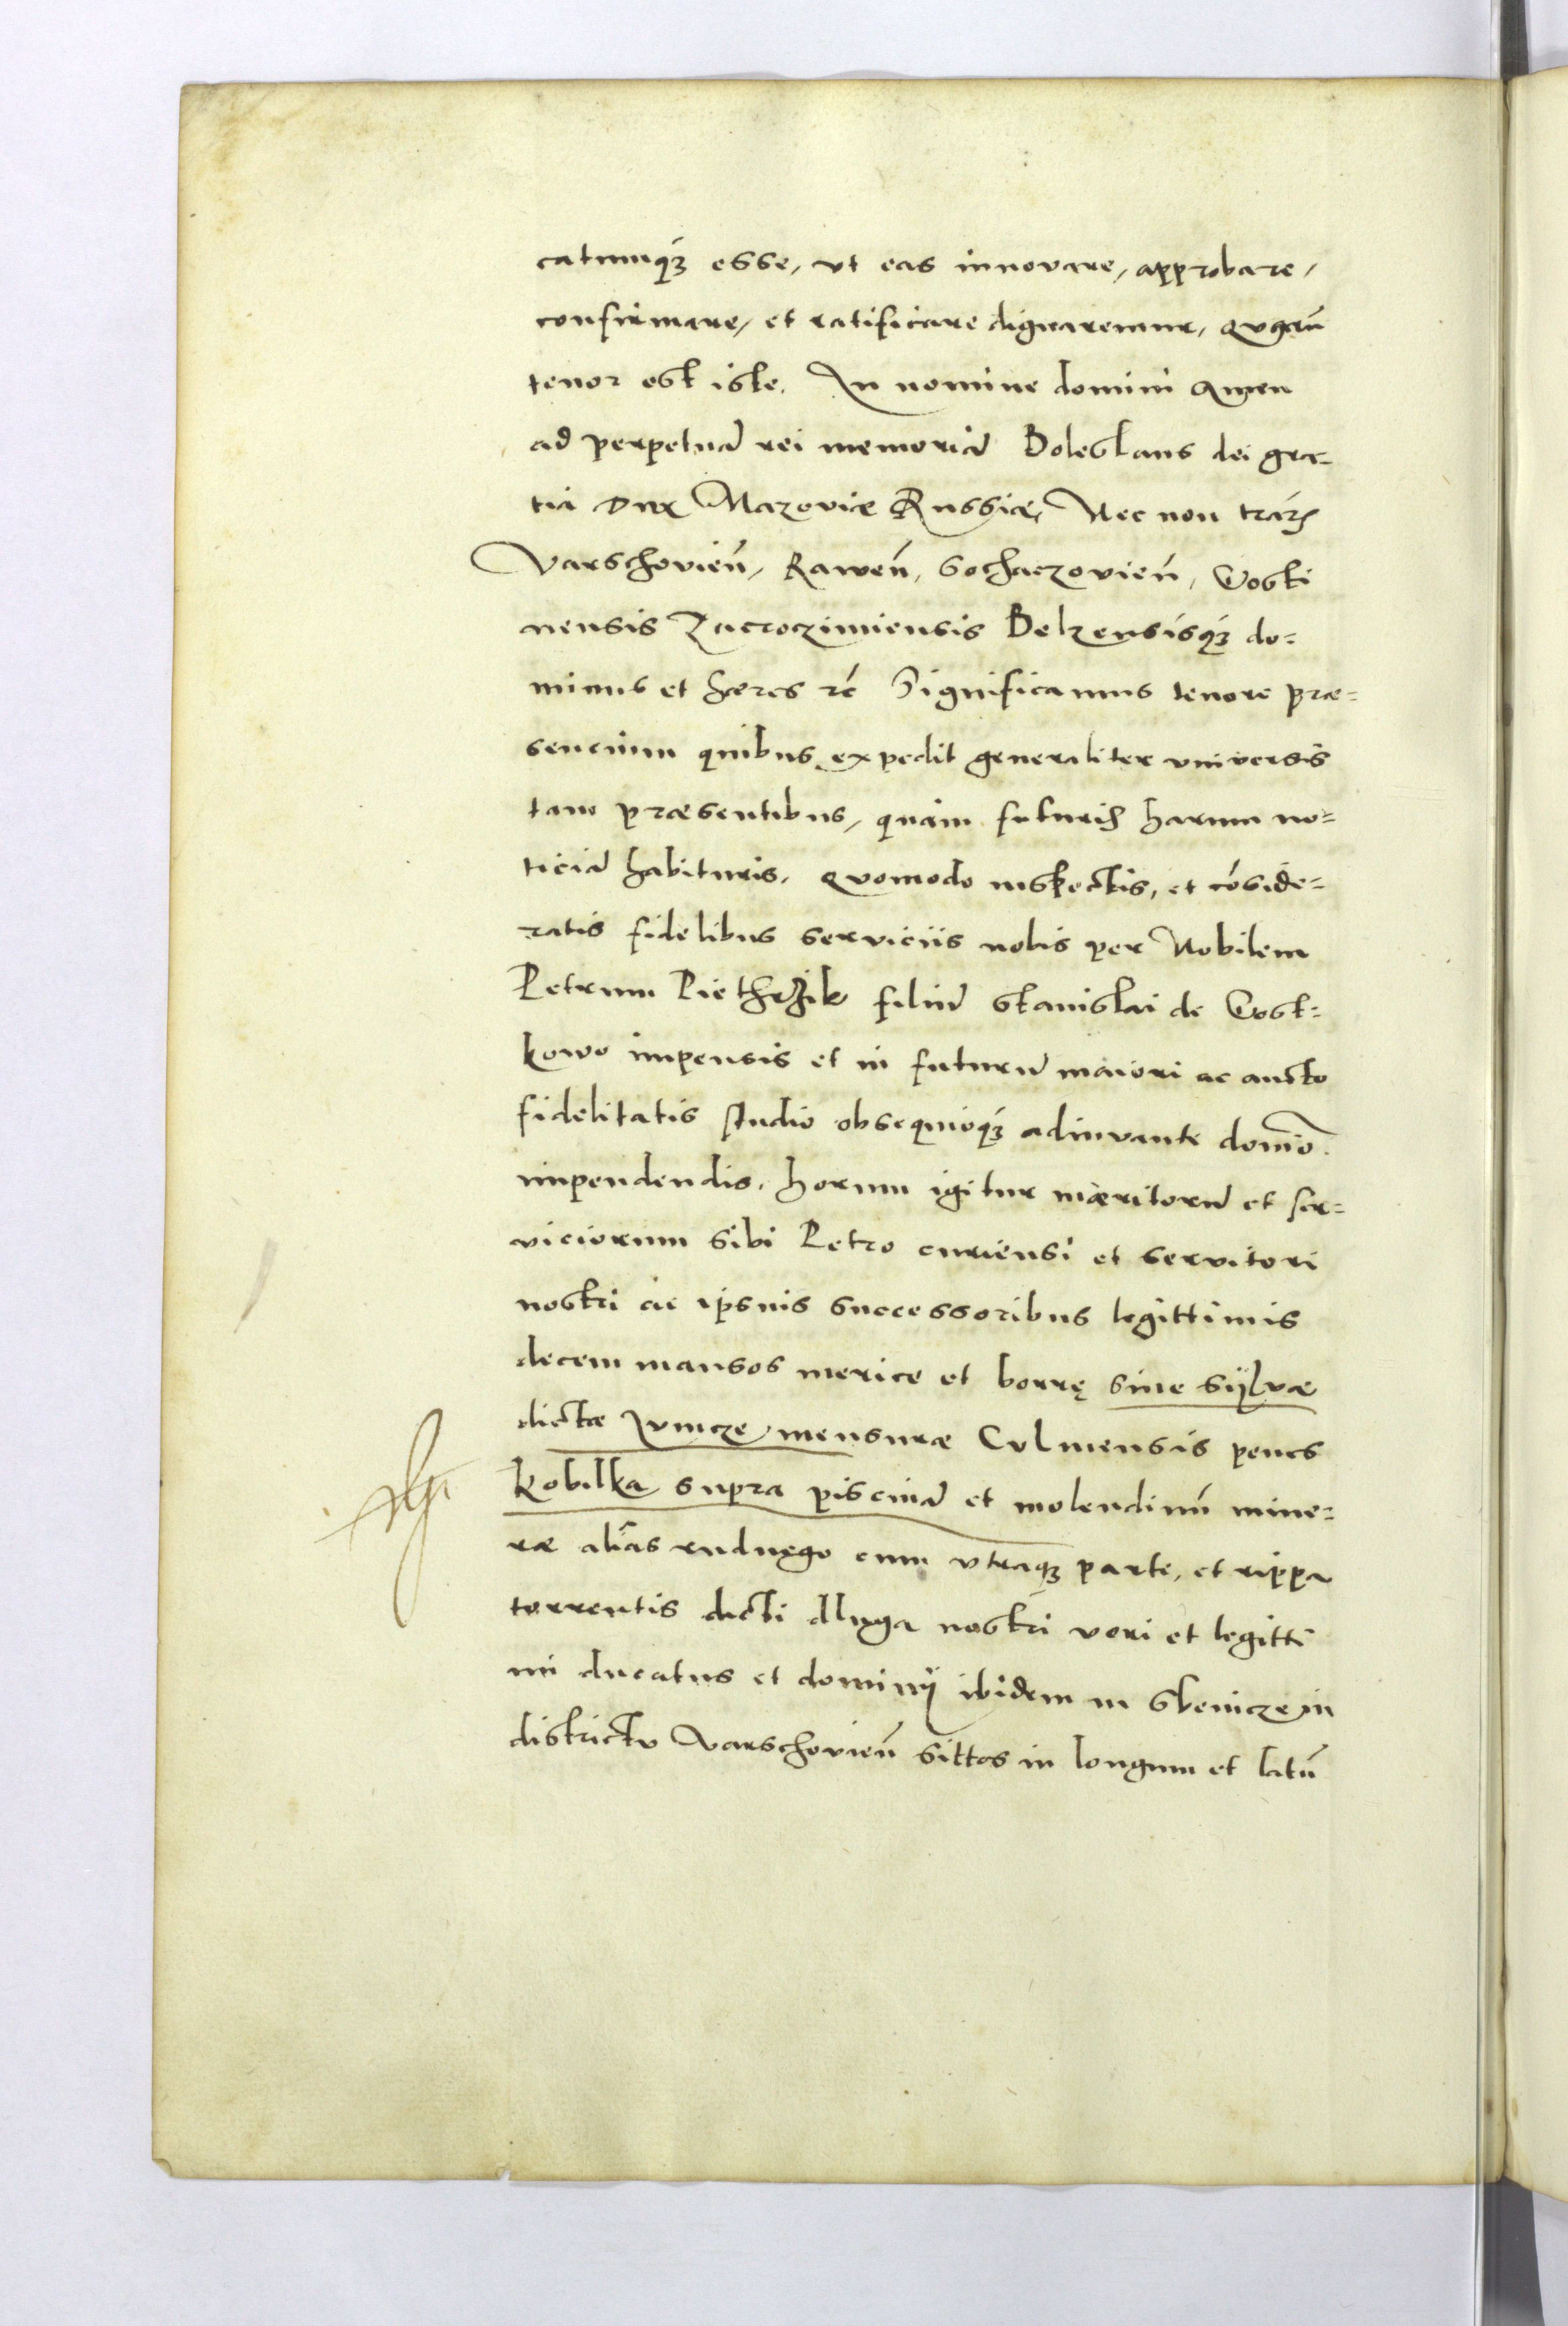 catumq́ꝫ esse, vt eas innovare, approbare,
confirmare, et ratificare dignaremur, qvarū
tenor est iste. In nomine domini Amen
ad perpetuā rei memoriā Boleslaus dei gra=
tia Dux Mazoviæ Russiæ, Nec non trārꝫ
Varschovieñ, Raweñ, Sochaczovieñ, Gosti
nensis Zacroczimiensis Belzensisq́ꝫ do=
minus et hæres rc̄ Significamus tenore præ=
sencium quibus expedit generaliter vniversis
tam præsentibus, quam futuris harum no=
ticiā habituris. Qvomodo inspectis, et cōside=
ratis fidelibus serviciis nobis per Nobilem
Petrum Piethrzik filiū Stanislai de Gost=
kowo impensis et in futurū maiori ac aucto
fidelitatis studio obsequioq́ꝫ adiuvante domīo
impendendis. Horum igitur mæritorū et ser=
viciorum sibi Petro curiensi et servitori
nostri ac ipsuis successoribus legittimis
decem mansos mericę et borrę sive syluæ
dictæ Ivincze mensuræ Culmensis penes
Kobilka supra piscinā et molendinū mine=
ræ aliās rudnęgo cum vtraqꝫ parte, et rippa
torrentis dicti dluga nostri veri et legitti
mi ducatus et dominÿ ibidem in Sbenicze in
districtv Varschovieñ sittos in longum et latū